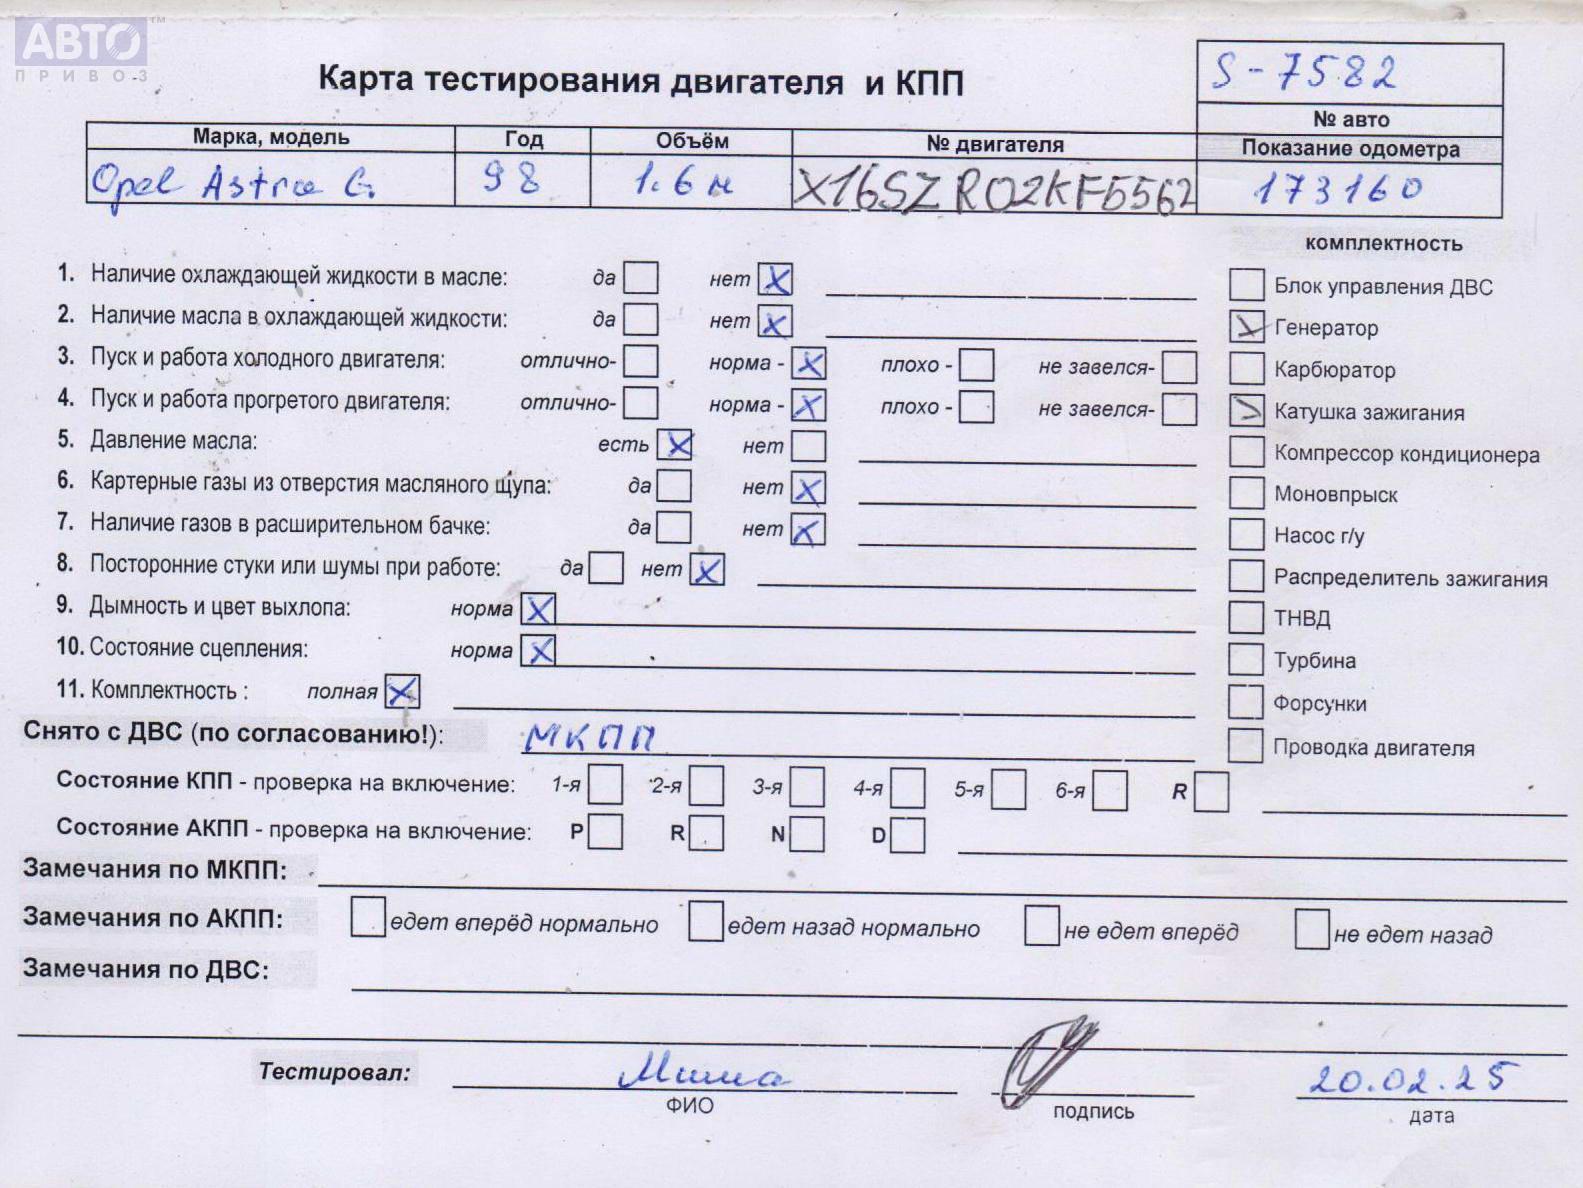 АВТО™
ПРИВОЗ
Карта тестирования двигателя и КПП
S-7582
№ авто
Марка, модель Год Объём № двигателя Показание одометра
Opel Astra G 98 1.6 и X16SZR02KF5562 173160
комплектность
1. Наличие охлаждающей жидкости в масле: да нет X
2. Наличие масла в охлаждающей жидкости: да нет X
3. Пуск и работа холодного двигателя: отлично- норма - X плохо - не завелся-
4. Пуск и работа прогретого двигателя: отлично- норма - X плохо - не завелся-
5. Давление масла: есть X нет
6. Картерные газы из отверстия масляного щупа: да нет X
7. Наличие газов в расширительном бачке: да нет X
8. Посторонние стуки или шумы при работе: да нет X
9. Дымность и цвет выхлопа: норма X
10. Состояние сцепления: норма X
11. Комплектность : полная X
Блок управления ДВС
Генератор
Карбюратор
Катушка зажигания
Компрессор кондиционера
Моновпрыск
Насос г/у
Распределитель зажигания
ТНВД
Турбина
Форсунки
Проводка двигателя
Снято с ДВС (по согласованию!): МКПП
Состояние КПП - проверка на включение: 1-я 2-я 3-я 4-я 5-я 6-я R
Состояние АКПП - проверка на включение: P R N D
Замечания по МКПП:
Замечания по АКПП: едет вперёд нормально едет назад нормально не едет вперёд не едет назад
Замечания по ДВС:
Тестировал: Миша 20.02.25
ФИО подпись дата